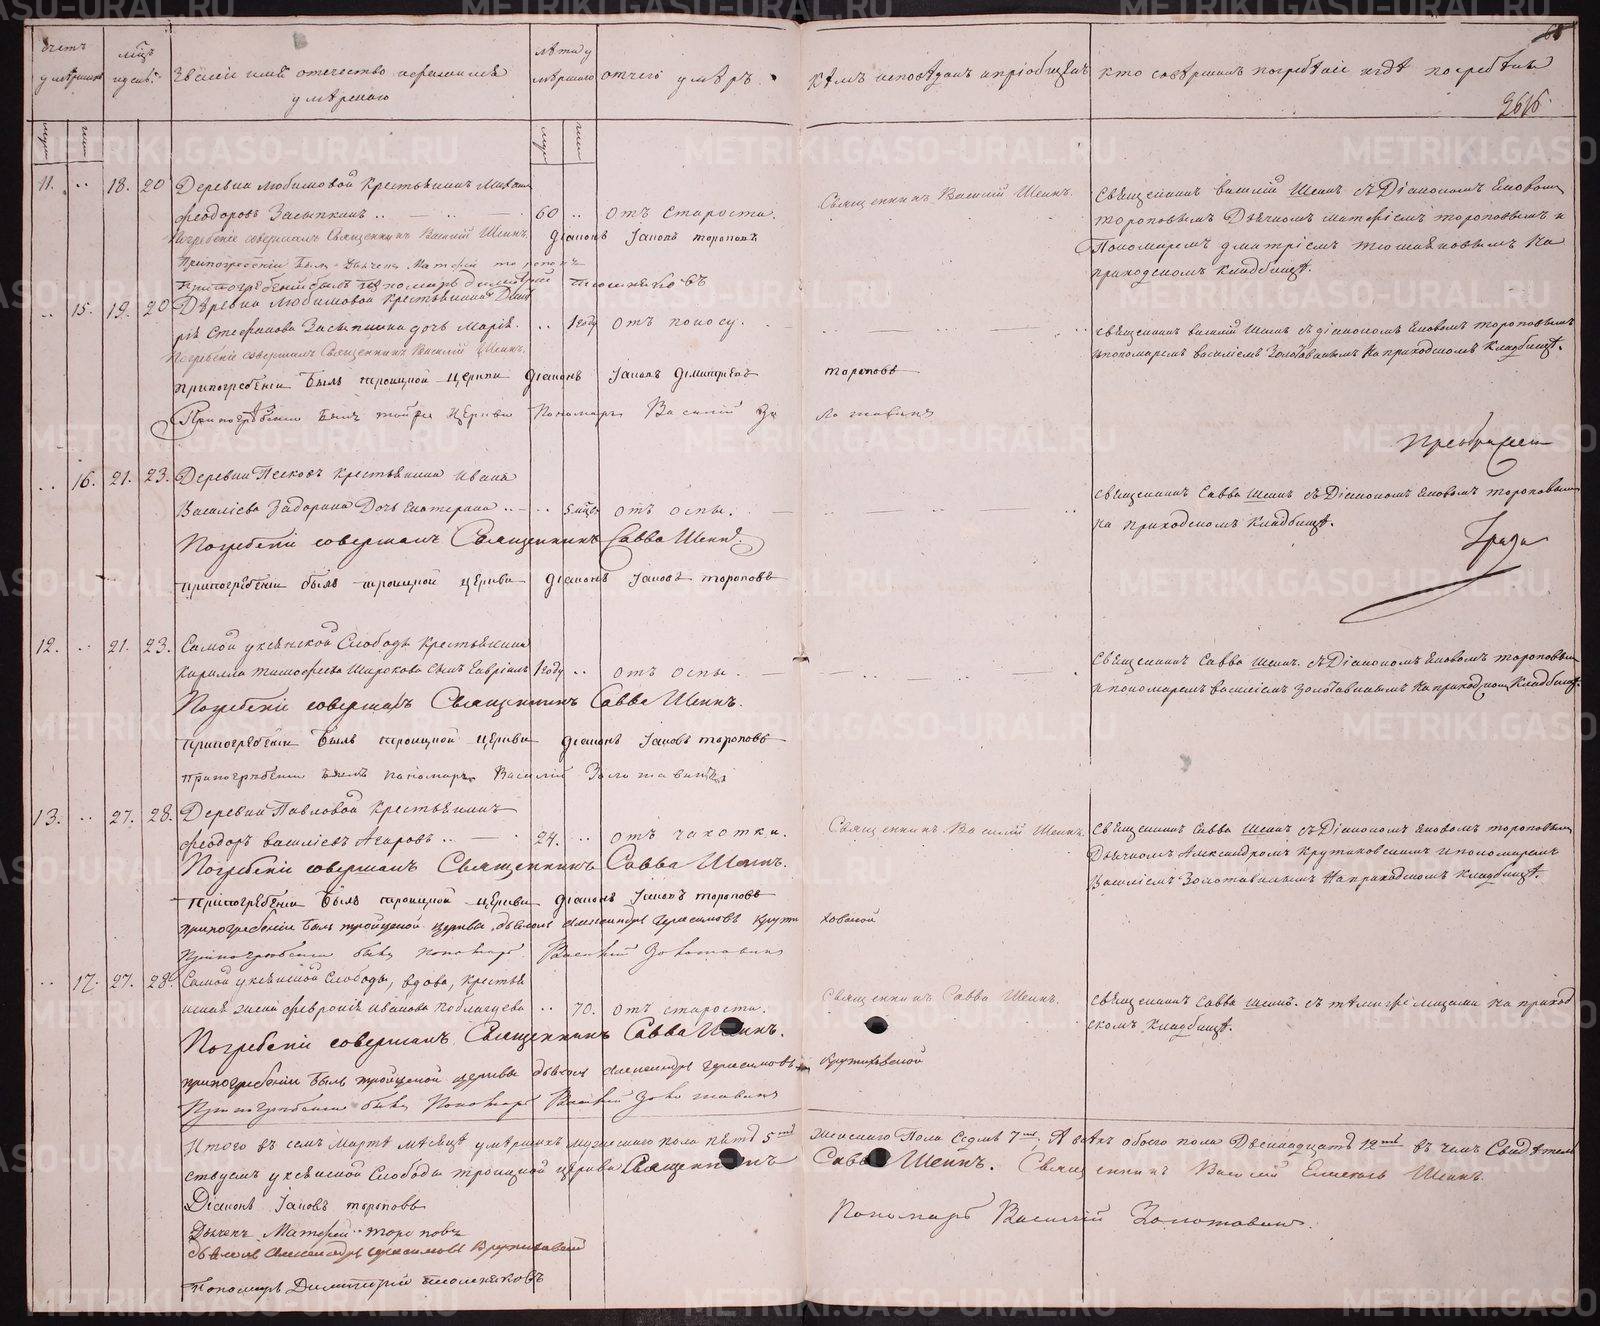 счетъ умершихъ
мѣсяцъ и день
званіе имя отечество и фамилія умершаго
лѣта умершаго
отчего умеръ
кѣмъ исповѣданъ и пріобщенъ
кто совершалъ погребеніе и гдѣ погребены
68
11. 18. 20 Деревни Любимовой крестьянинъ
Феодоровъ Засыпкинъ 60 отъ старости.
Погребеніе совершалъ Священникъ Василій Шеинъ. діаконъ Іаковъ Тороповъ
При погребеніи былъ дьячекъ Матфей Тороповъ
При погребеніи былъ пономарь Димитрій
Священникъ Василій Шеинъ.
Священникъ Василій Шеинъ съ Діакономъ Іаковомъ
Тороповымъ Дьячкомъ Матфіемъ Тороповымъ и
Пономаремъ Дмитріемъ на
приходскомъ кладбищѣ.
15. 19. 20 Деревни Любимовой крестьянина
Стефанова Засыпкина дочь Марія 1 году отъ поносу.
Погребеніе совершалъ Священникъ Василій Шеинъ.
При погребеніи былъ троицкой церкви діаконъ Іаковъ Димитріевъ Тороповъ
При погребеніи былъ той же церкви Пономарь Василій
Священникъ Василій Шеинъ съ діакономъ Іаковомъ Тороповымъ
и пономаремъ Василіемъ Золотавинымъ на приходскомъ кладбищѣ.
16. 21. 23. Деревни крестьянина Ивана
Василіева Задорина Дочь Екатерина 5 мѣс. отъ оспы.
Погребеніе совершалъ Священникъ Савва Шеинъ.
При погребеніи былъ троицкой церкви діаконъ Іаковъ Тороповъ
Священникъ Савва Шеинъ съ Діакономъ Іаковомъ Тороповымъ
на приходскомъ кладбищѣ.
12. 21. 23. Самой Уксянской Слободы крестьянина
Кирилла Тимофеева Широкова сынъ Гавріилъ 1 году отъ оспы.
Погребеніе совершалъ Священникъ Савва Шеинъ.
При погребеніи былъ троицкой церкви діаконъ Іаковъ Тороповъ
При погребеніи былъ пономарь Василій Золотавинъ
Священникъ Савва Шеинъ. съ Діакономъ Іаковомъ Тороповымъ
и пономаремъ Василіемъ Золотавинымъ на приходскомъ кладбищѣ.
13. 27. 28. Деревни Павловой крестьянинъ
Феодоръ Василіевъ Агаровъ 24. отъ чахотки.
Погребеніе совершалъ Священникъ Савва Шеинъ.
При погребеніи былъ троицкой церкви діаконъ Іаковъ Тороповъ
При погребеніи былъ троицкой церкви дьячокъ Александръ Герасимовъ Крутиховской
При погребеніи былъ пономарь Василій Золотавинъ
Священникъ Василій Шеинъ.
Священникъ Савва Шеинъ съ Діакономъ Іаковомъ Тороповымъ
Дьячкомъ Александромъ Крутиховскимъ и пономаремъ
Василіемъ Золотавинымъ на приходскомъ кладбищѣ.
17. 27. 28. Самой Уксянской Слободы, вдова,
жена Февронія Иванова 70. отъ старости.
Погребеніе совершалъ Священникъ Савва Шеинъ.
При погребеніи былъ троицкой церкви дьячокъ Александръ Герасимовъ Крутиховской
При погребеніи былъ Пономарь Василій Золотавинъ
Священникъ Савва Шеинъ.
Священникъ Савва Шеинъ. съ тѣми же лицами на приходскомъ кладбищѣ.
Итого въ семъ Мартѣ мѣсяцѣ умершихъ мужескаго пола пять 5 женскаго Пола Семь 7, а всѣхъ обоего пола Двенадцать 12 въ чемъ Свидѣтельствуемъ Уксянской Слободы троицкой церкви Священникъ Савва Шеинъ. Священникъ Василій Шеинъ.
Діаконъ Іаковъ Тороповъ
Дьячекъ Матфей Тороповъ
Дьячокъ Александръ Герасимовъ Крутиховской
Пономарь Василій Золотавинъ.
Пономарь Димитрій
METRIKI.GASO-URAL.RU